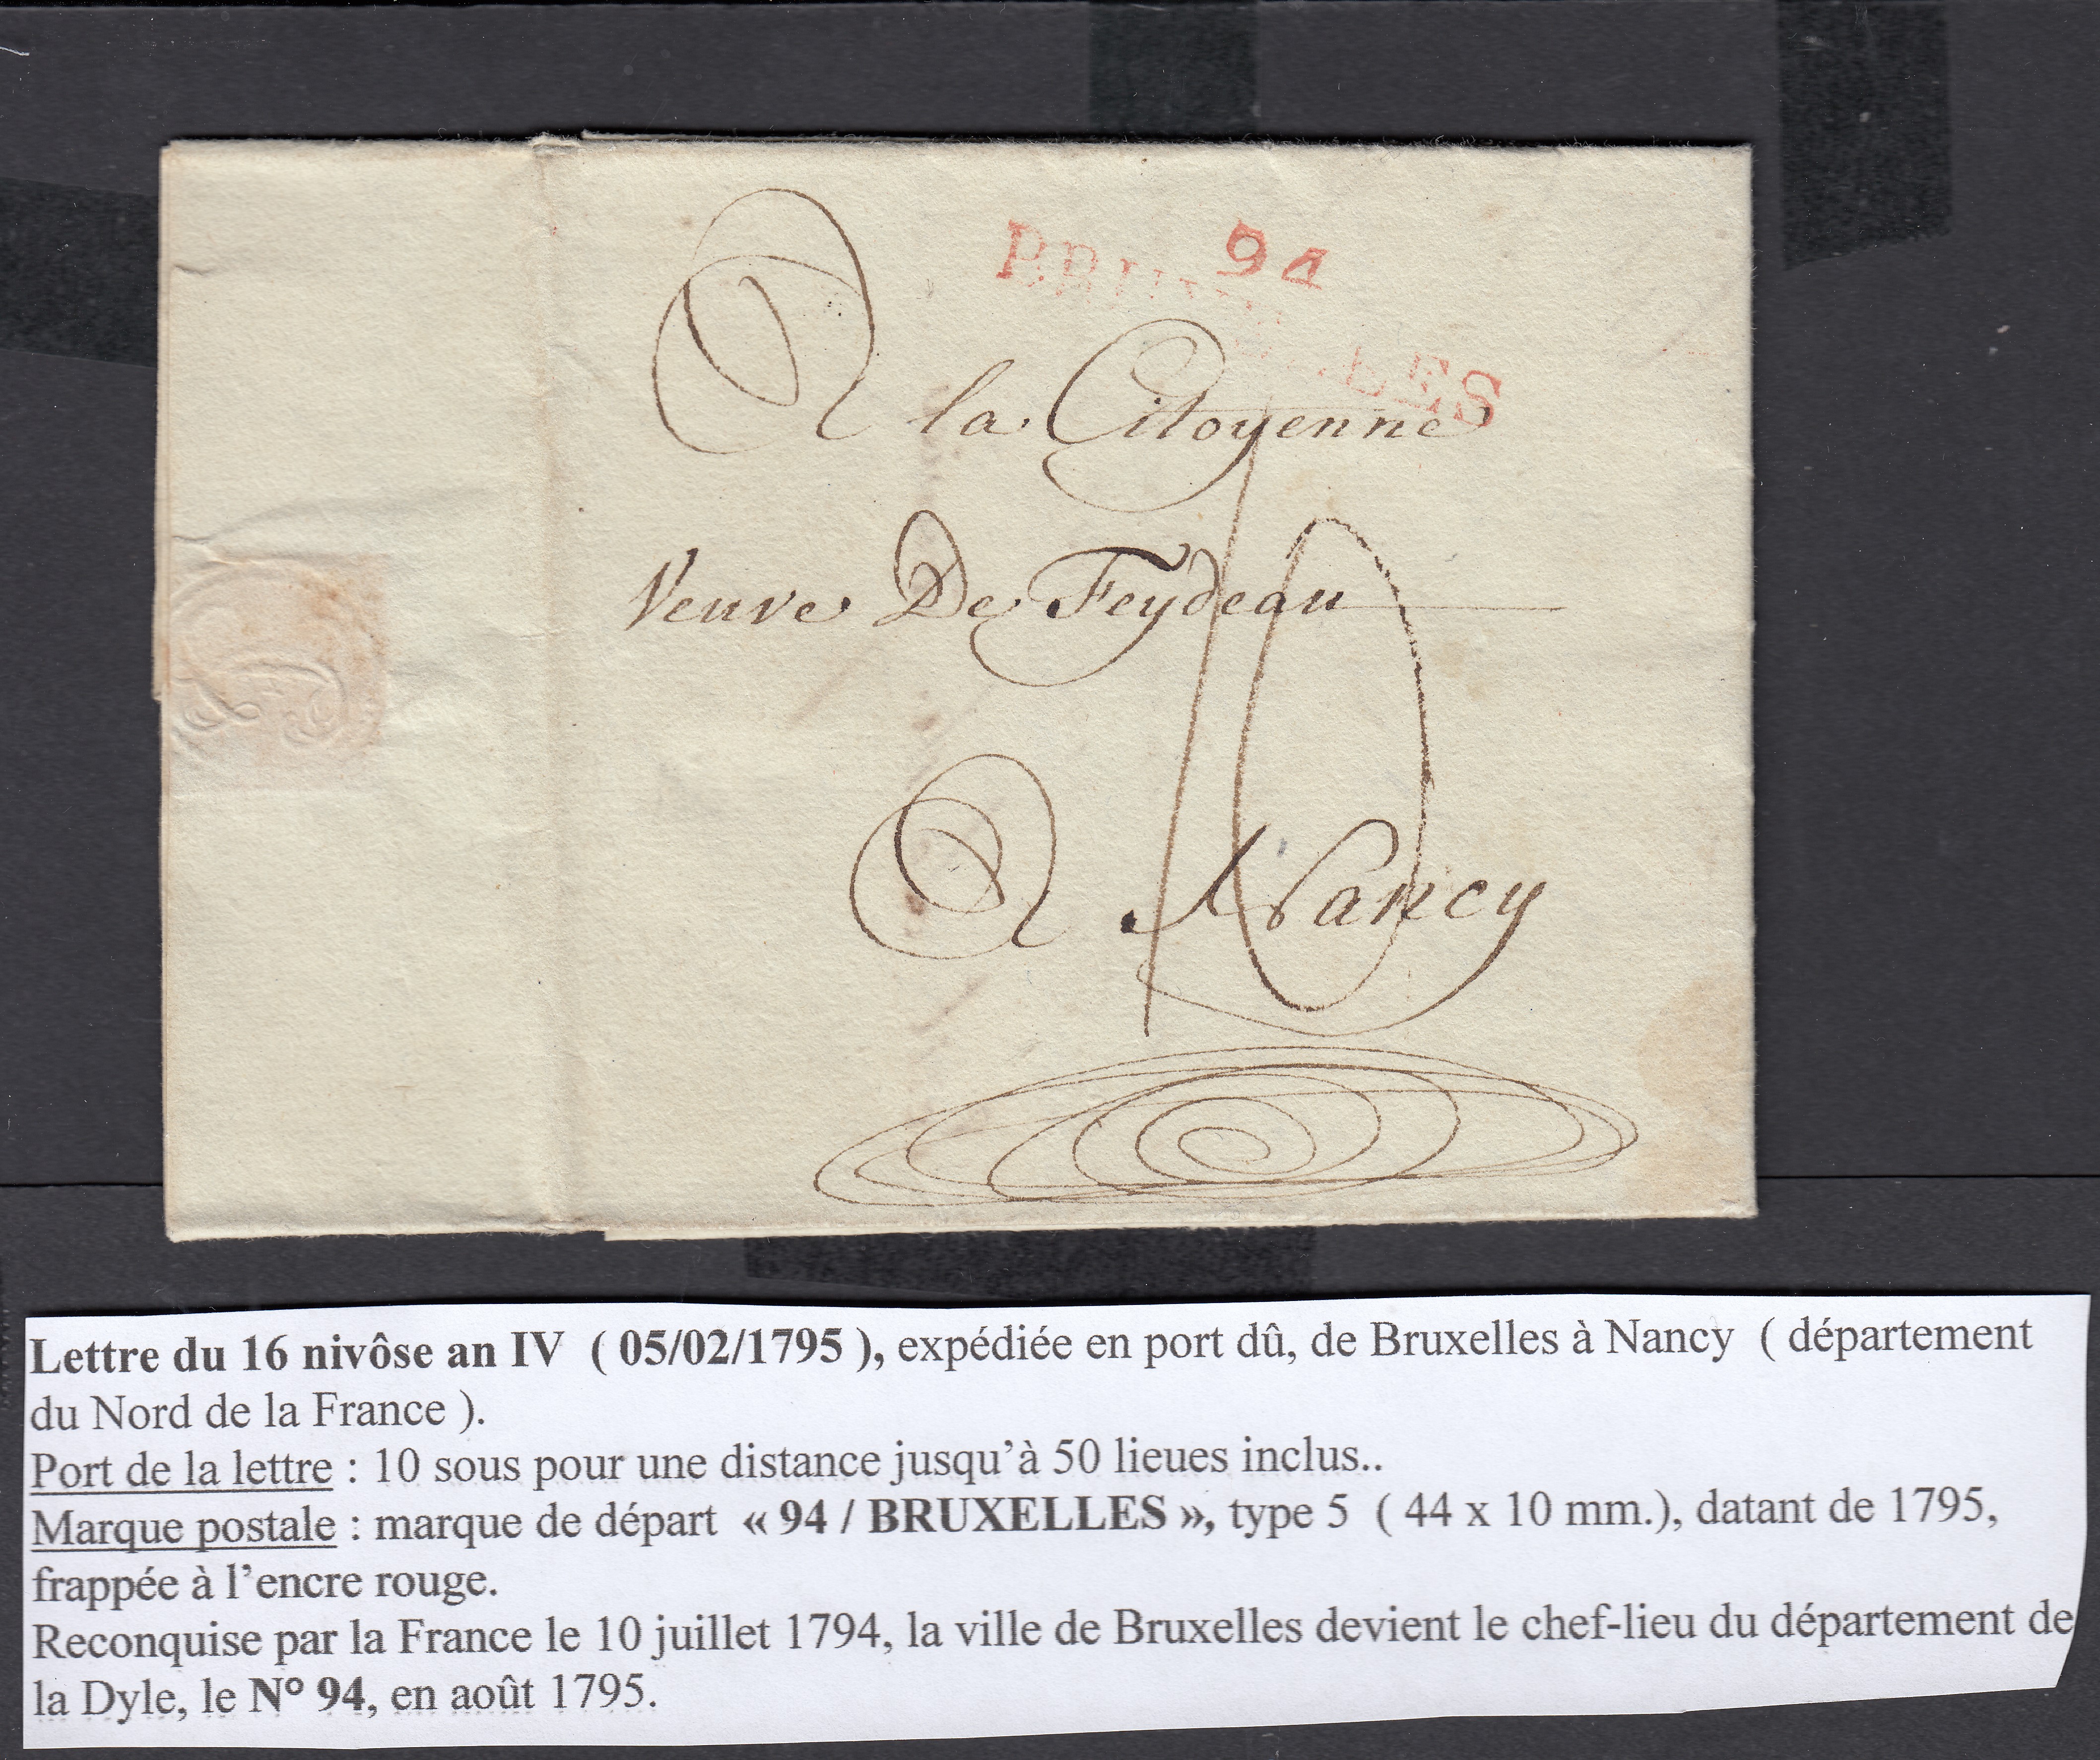 94
BRUXELLES
A la Citoyenne
Veuve De Feydeau
10
A Nancy
Lettre du 16 nivôse an IV ( 05/02/1795 ), expédiée en port dû, de Bruxelles à Nancy ( département
du Nord de la France ).
Port de la lettre : 10 sous pour une distance jusqu'à 50 lieues inclus..
Marque postale : marque de départ « 94 / BRUXELLES », type 5 ( 44 x 10 mm.), datant de 1795,
frappée à l'encre rouge.
Reconquise par la France le 10 juillet 1794, la ville de Bruxelles devient le chef-lieu du département de
la Dyle, le N° 94, en août 1795.